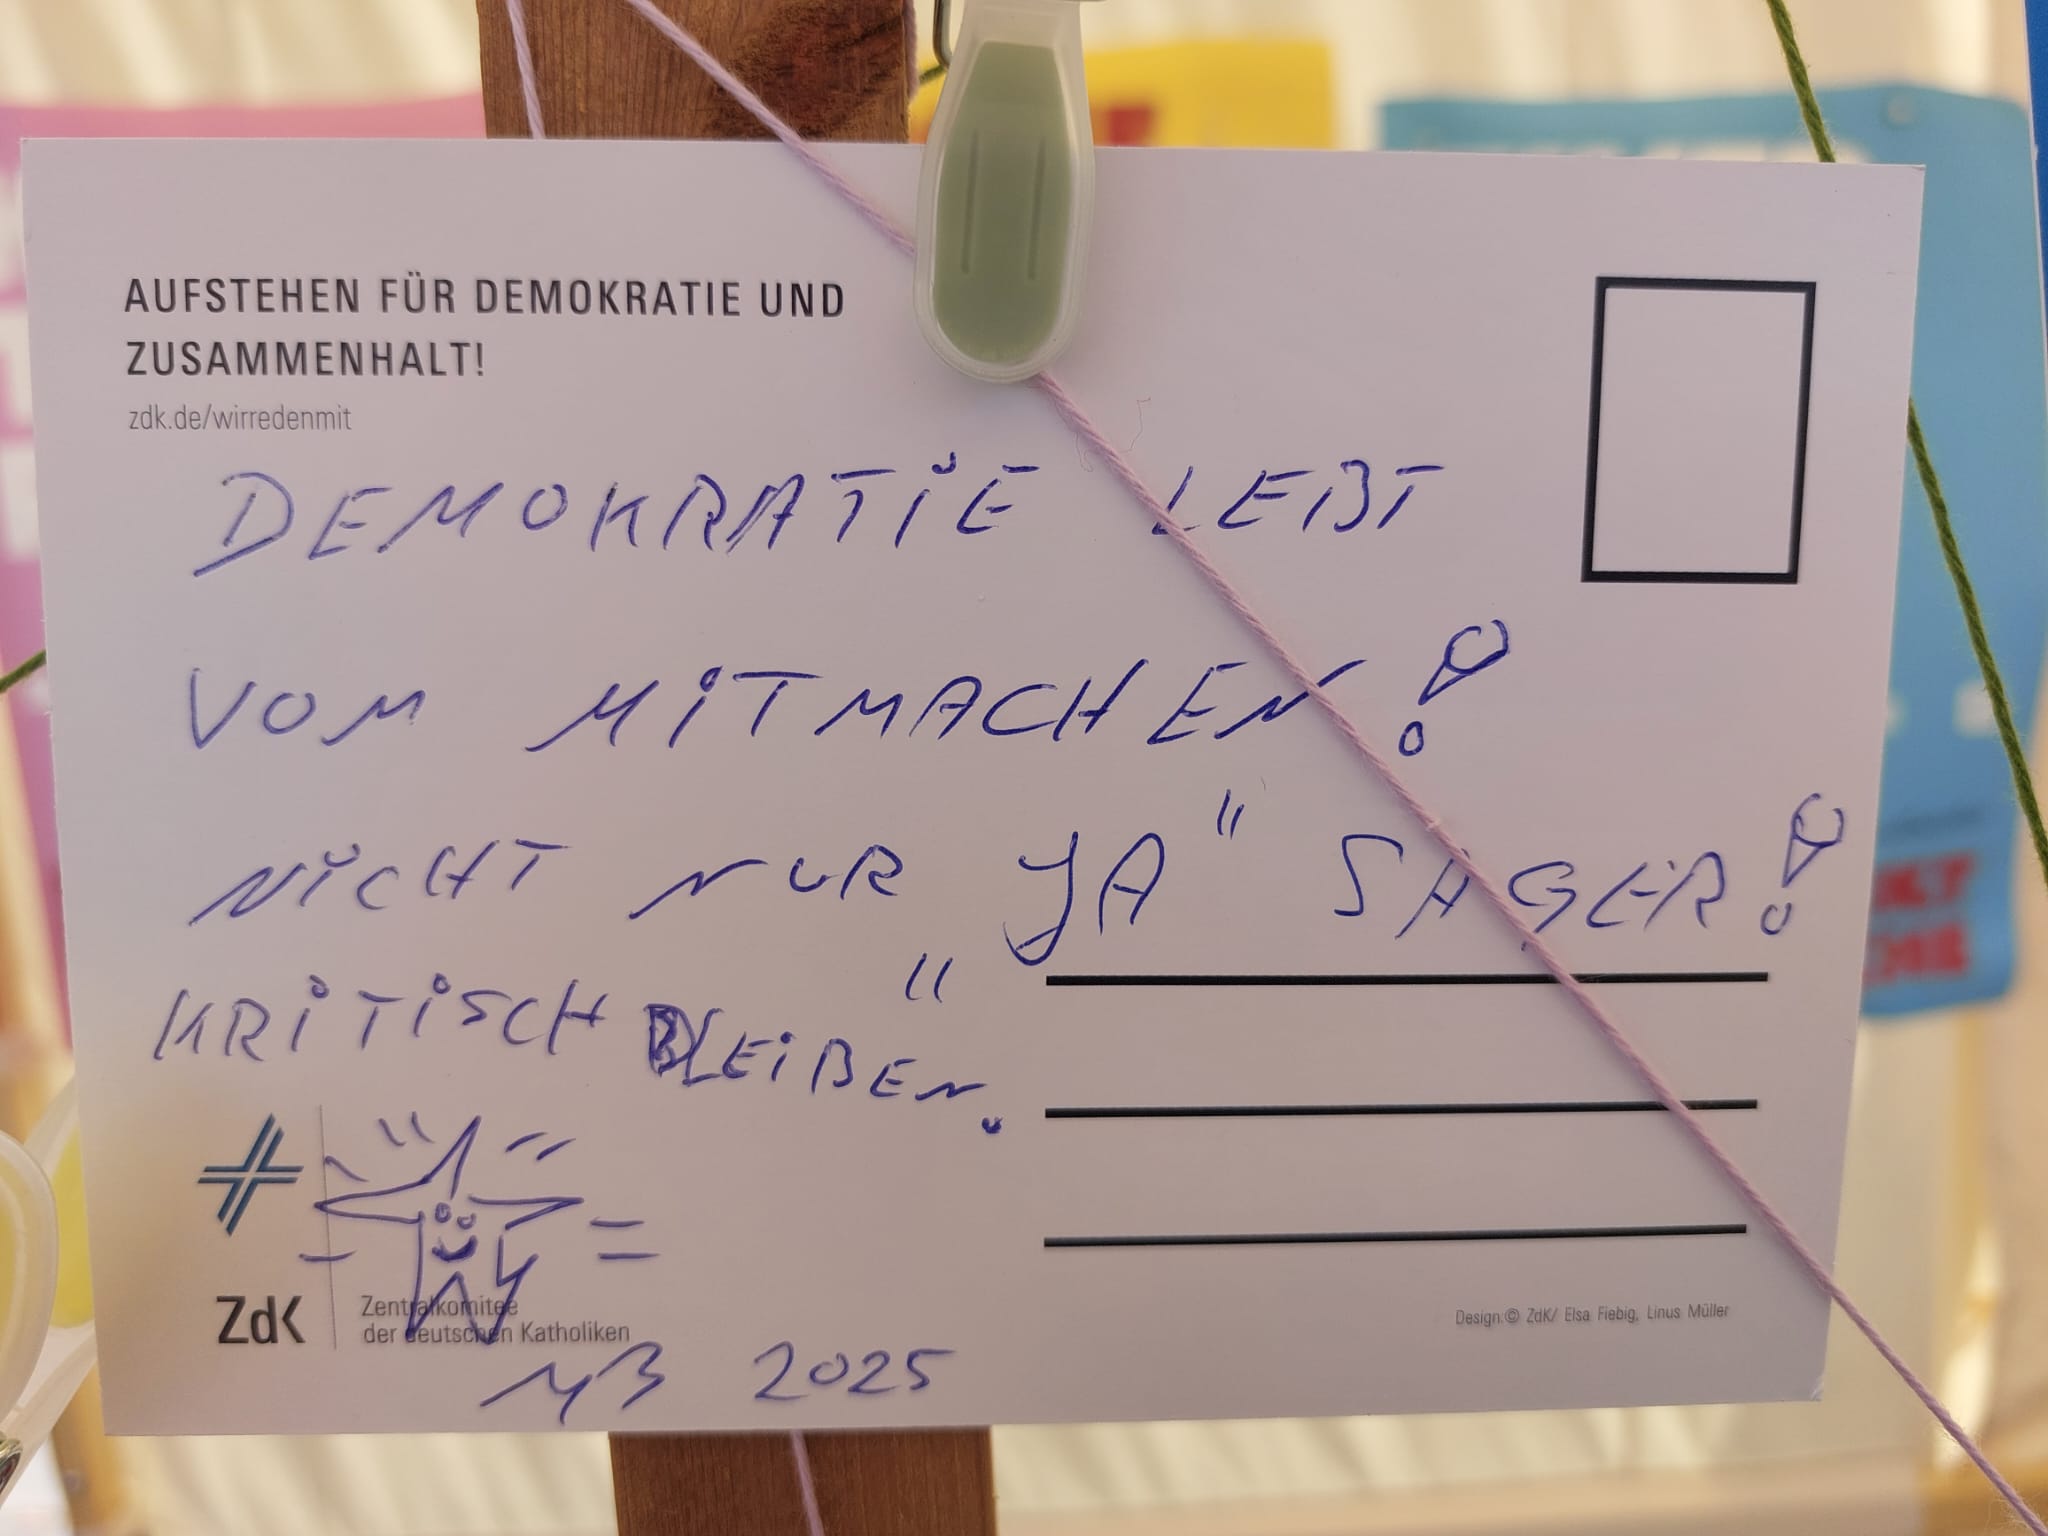 AUFSTEHEN FÜR DEMOKRATIE UND
ZUSAMMENHALT!
zdk.de/wirredenmit
DEMOKRATIE LEBT
VOM MITMACHEN!
NICHT NUR "JA" SAGER!
KRITISCH BLEIBEN.
ZdK
Zentralkomitee
der deutschen Katholiken
Design:© ZdK/ Elsa Fiebig, Linus Müller
2025